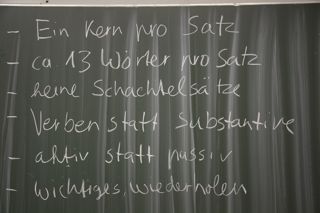 - Ein Kern pro Satz
- ca. 13 Wörter pro Satz
- keine Schachtelsätze
- Verben statt Substantive
- aktiv statt passiv
- wichtiges wiederholen